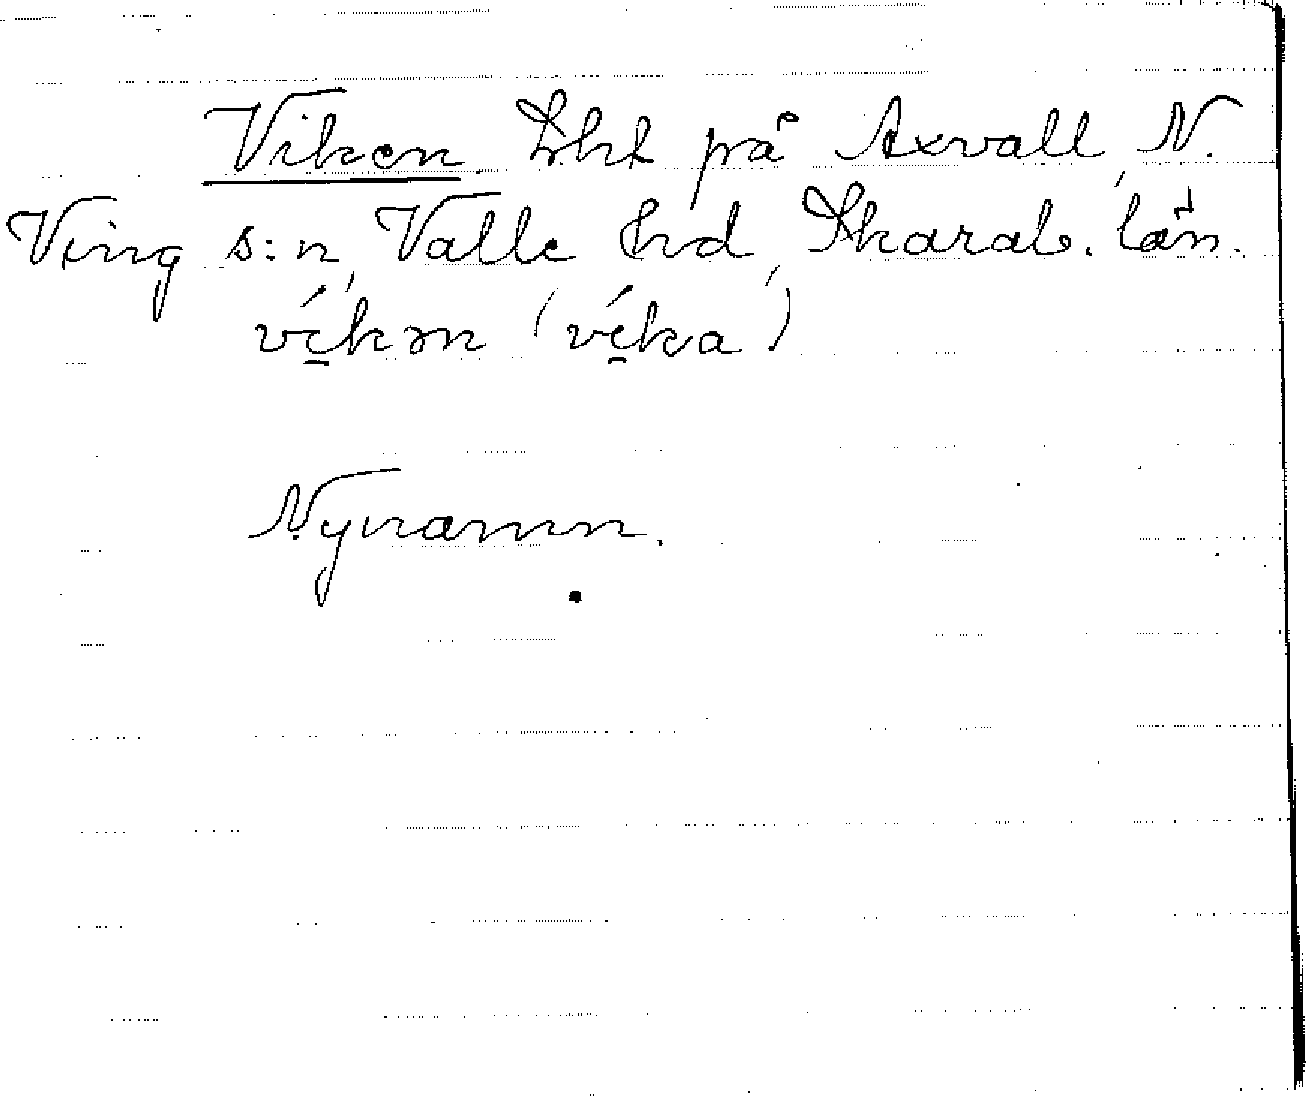 Viken Lht på Axvall, N.
Ving s:n, Valle hd, Skarab. län.
ví̱kən (ví̱ka)
Nynamn.